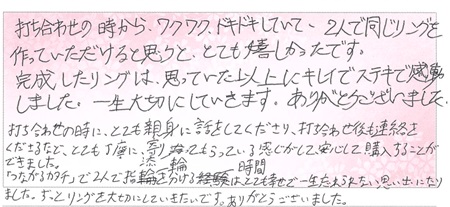 打ち合わせの時から、ワクワク、ドキドキしていて、2人で同じリングを
作っていただけると思うと、とても嬉しかったです。
完成したリングは、思っていた以上にキレイでステキで感動
しました。一生大切にしていきます。ありがとうございました。
打ち合わせの時に、とても親身に話をしてくださり、打ち合わせ後も連絡を
くださるなど、とても丁寧に寄りそってもらっている感じがして安心して購入することが
できました。
「つながるカタチ」で2人で指輪を分ける時間はとても幸せで一生忘れられない思い出になり
ました。ずっとリングを大切にしていきたいです。ありがとうございました。